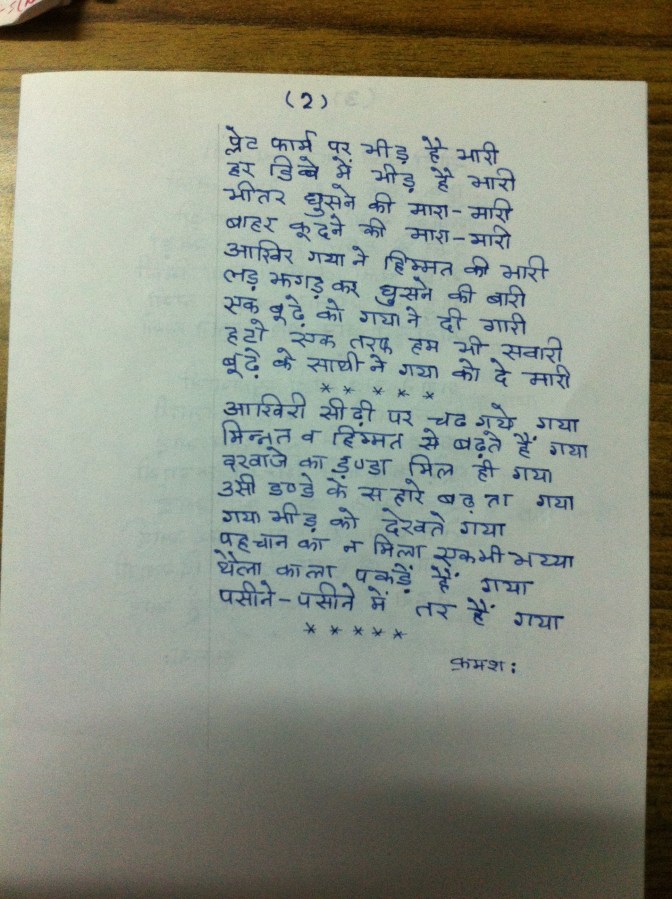 (2)
प्लेट फार्म पर भीड़ है भारी
हर डिब्बे में भीड़ है भारी
भीतर घुसने की मारा-मारी
बाहर कूदने की मारा-मारी
आखिर गया ने हिम्मत की भारी
लड़ झगड़ कर घुसने की बारी
एक बूढ़े को गया ने दी गारी
हटो एक तरफ हम भी सवारी
बूढ़े के साथी ने गया को दे मारी
* * * * *
आखिरी सीढ़ी पर चढ गये गया
मिन्नत व हिम्मत से बढ़ते हैं गया
दरवाजे का डण्डा मिल ही गया
उसी डण्डे के सहारे बढ़ता गया
गया भीड़ को देखते गया
पहचान का न मिला एक भी भय्या
थैला काला पकड़ें हैं गया
पसीने-पसीने में तर हैं गया
* * * * *
क्रमश: